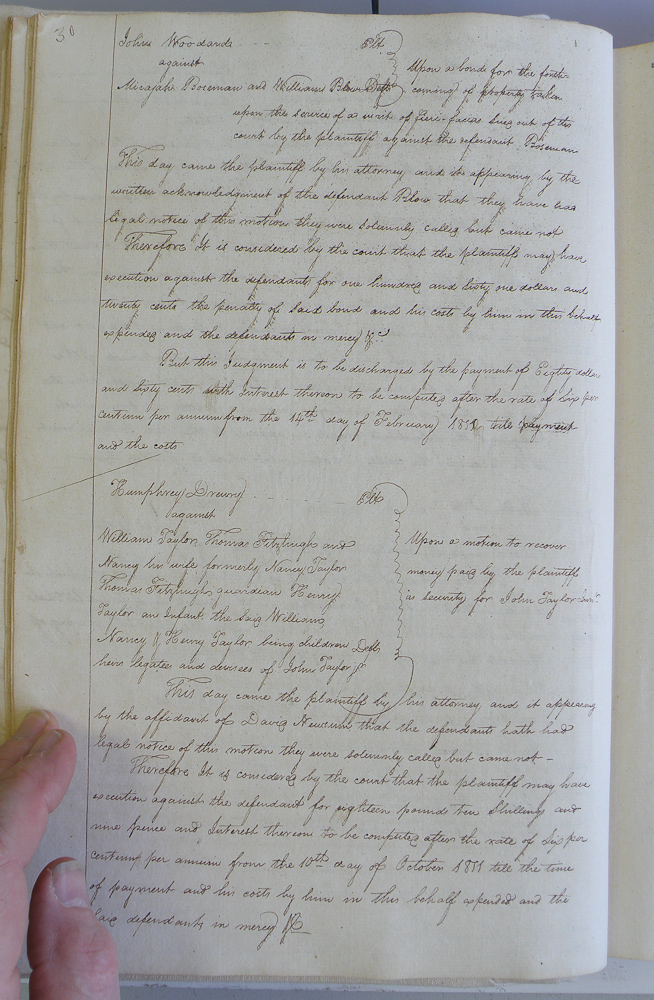 30
John Woodard Plt
against
Micajah Boseman and William Blow Defts
Upon a bond for the forth-
coming of property taken
upon the service of a writ of fieri-facias sued out of this
court by the plaintiff against the defendant Boseman
This day came the plaintiff by his attorney and it appearing by the
written acknowledgment of the defendant Blow that they have had
legal notice of this motion they were solemnly called but came not
Therefore It is considered by the court that the plaintiff may have
execution against the defendants for one hundred and sixty one dollars and
twenty cents the penalty of said bond and his costs by him in this behalf
expended and the defendants in mercy &c
But this Judgment is to be discharged by the payment of Eighty dollars
and sixty cents with Interest thereon to be computed after the rate of six per
centum per annum from the 14th day of February 1811 till payment
and the costs
Humphrey Drewry Plt
against
William Taylor Thomas Fitzhugh and
Nancy his wife formerly Nancy Taylor
Thomas Fitzhugh guardian Henry
Taylor an Infant the said William
Nancy & Henry Taylor being children Defts
heirs legatees and devisees of John Taylor jr
Upon a motion to recover
money paid by the plaintiff
as security for John Taylor
This day came the plaintiff by his attorney and it appearing
by the affidavit of David Newsum that the defendants hath had
legal notice of this motion they were solemnly called but came not -
Therefore It is considered by the court that the plaintiff may have
execution against the defendant for eighteen pounds ten Shillings and
nine pence and Interest thereon to be computed after the rate of Six per
centum per annum from the 10th day of October 1811 till the time
of payment and his costs by him in this behalf expended and the
said defendants in mercy &c